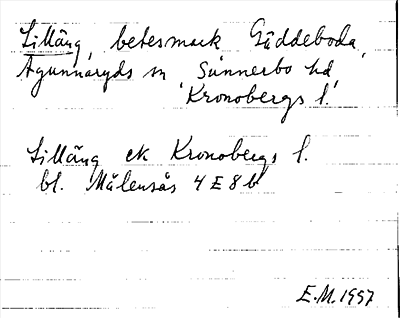 Lilläng, betesmark Gäddeboda,
Agunnaryds sn, Sunnerbo hd,
Kronobergs l.
Lilläng ek Kronobergs l.
bl. Målensås 4 E 8 b
E.M. 1997